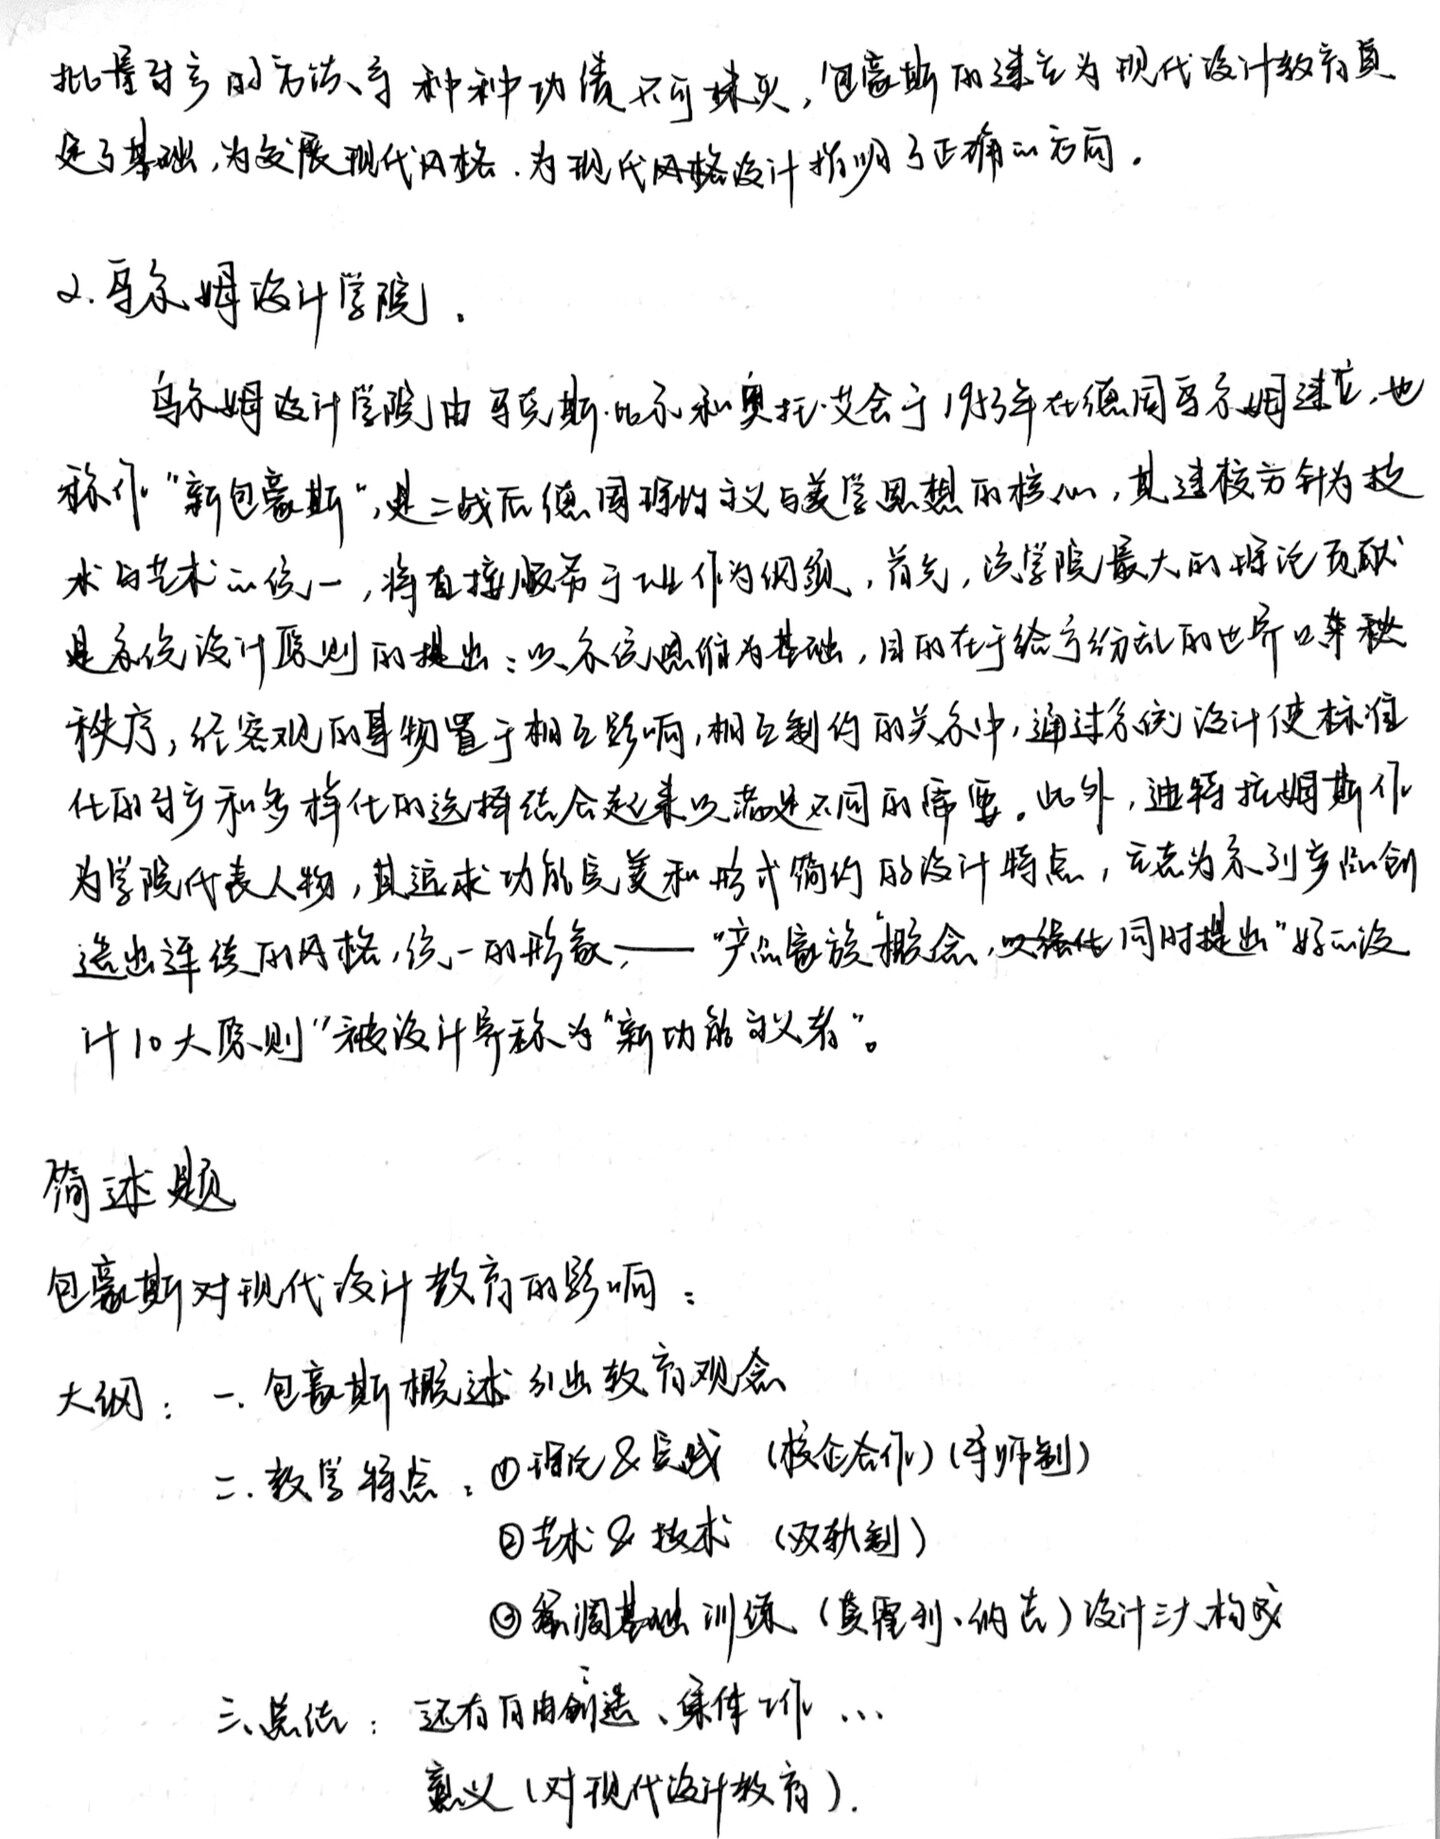 批量生产的方法、等种种功绩不可抹灭，包豪斯的建立为现代设计教育奠
定了基础，为发展现代风格.为现代风格设计指明了正确的方向。
2.乌尔姆设计学院.
乌尔姆设计学院由马克斯·比尔和奥托·艾舍于1953年在德国乌尔姆建立，也
称作“新包豪斯”，是二战后德国理性主义与美学思想的核心，其建校方针为技
术与艺术的统一，将直接服务于工业作为纲领，首先，该学院最大的理论贡献
是系统设计原则的提出：以系统思维为基础，目的在于给予纷乱的世界以秩
秩序，使客观的事物置于相互影响，相互制约的关系中，通过系统设计使标准
化的生产和多样化的选择结合起来以满足不同的需要。此外，迪特拉姆斯作
为学院代表人物，其追求功能完美和形式简约的设计特点，立志为系列产品创
造出连续的风格，统一的形象，——“产品家族”概念，同时提出“好的设
计10大原则”被设计界称为“新功能主义者”。
简述题
包豪斯对现代设计教育的影响：
大纲：一.包豪斯概述引出教育观念
二.教学特点：①理论&实践（校企合作）（导师制）
②艺术&技术（双轨制）
③强调基础训练（莫霍利·纳吉）设计三大构成
三、总结：还有自由创造、集体工作...
意义（对现代设计教育）.